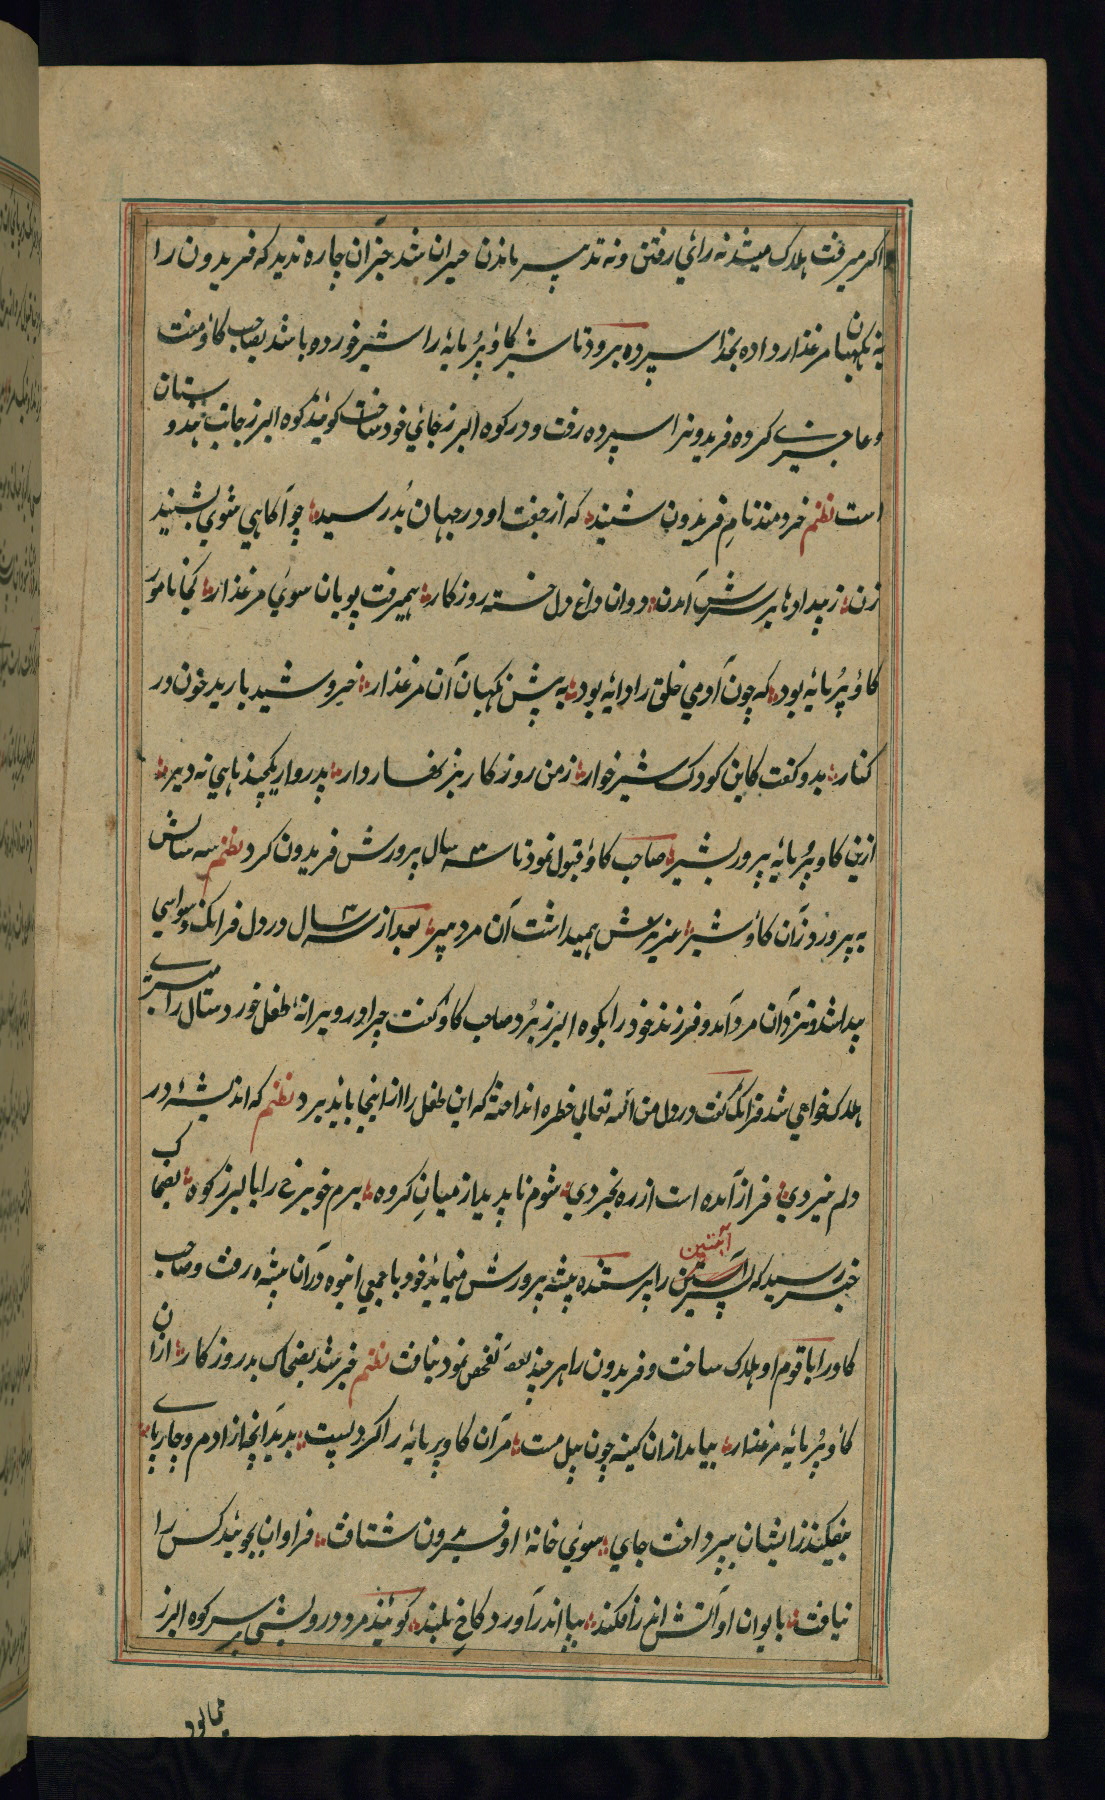 اکر میرفت هلاک میشد نه رائي رفتن و نه تدبیر ماندن حیران شد جز آن چاره ندید که فریدون را
به نکهبان مرغذار داده بخدا سپرده برود تا شیر کاؤ پُرمایهٔ را شیر خورده باشد بصاحب کاؤ منت
و عاجزی کروه فریدونرا سپرده رفت و در کوه البرز جائي خود ساخت کویند کوه البرز جانب هندوستان
است نظم خردمند نامِ فریدون شنیند که از جفت او در جهان بُد رسید چو آکاهي شوي بشنیذ
زن ز بیداوها بر سرش آمدن دوان داغ دل خسته روزکار همیرفت پویان سوئي مرغذار کجا نامور
کاؤ پُرمایهٔ بود که چون آدمي خلق را دایهٔ بود به پش نکهبان آن مرغذار خروشید بارید خون در
کنار بدو کفت کاین کودک شیرخوار ز من روزکار بزنهار دار پدروار یکچند ماهي نه دیر
ازین کاو پُرمایهٔ بپرور بشیر صاحب کاؤ قبول نمود تا ۳ سه سال پرورش فریدون کرد نظم سه سالش
به پرورد زان کاؤ شیر عزیزش همیداشت آن مرد پیر بعد از ۳ سه سال در دل فرانک وسواسي
پیدا شد و نزد آن مرد آمد و فرزند خود را بکوه البرز برُد صاحب کاؤ کفت چرا در ویرانهٔ طفل خوردسال را میبری
هلاک خواهي شد فرانک کفت در دل من الله تعالی خطره انداخته که این طفل را از اینجا باید برد نظم که اندیشهٔ در
دلم ایزدي فراز آمده است از ره بخردي شوم ناپدید از میانِ کروه برم خوبرخ را بالبرز کوه بضحاک
خبر رسید که آبتین را پرستنده بیشه پرورش مینماید خود با جمعي انبوه در آن بیشه رفت و صاحب
کاو را با قوم او هلاک ساخت و فریدون را هر چند تفحص نمود نیافت نظم خبر شد بضحاک بد روزکار ازان
کاؤ پُرمایهٔ مرغذار بیامد ازان کینه چون پیل مست مر آن کاو پرمایهٔ را کرد پست بدید آنچه از ادم و چارپای
بیفکند زایشان بپرداخت جاي سوئي خانهٔ او فریدون شتافت فراوان بجوئید کس را
نیافت بایوان او آتش اندر افکند بپا اندر آورد کاخِ بلند کویند مرد درویشي بر سر کوه البرز
میبالود